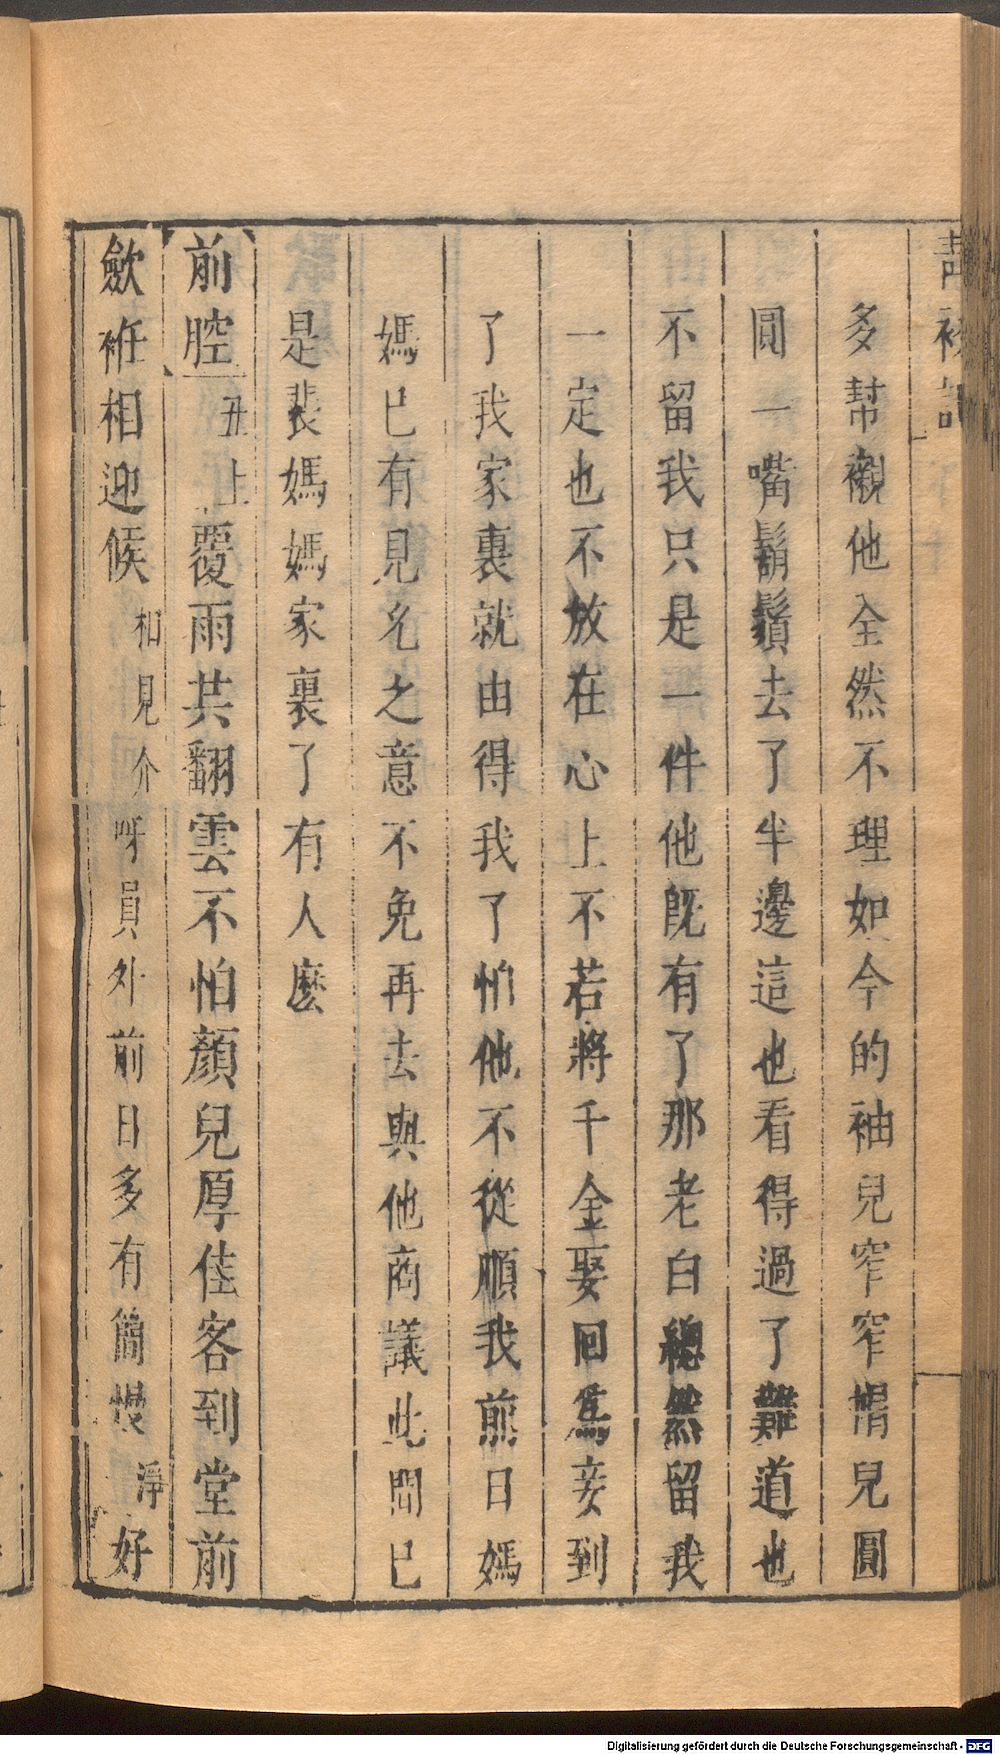 青衫記
多幇襯他全然不理如今的袖兒窄窄帽兒圓
圓一嘴鬍鬚去了半邊這也看得過了難道也
不留我只是一件他旣有了那老白總然留我
一定也不放在心上不若將千金娶回爲妾到
了我家裏就由得我了怕他不從順我前日媽
媽已有見允之意不免再去與他商議此間已
是裴媽媽家裏了有人麽
前腔 丑上 覆雨共翻雲不怕顏兒厚佳客到堂前
斂袵相迎候 相見介 呀員外前日多有簡慢 淨 好
Digitalisierung gefördert durch die Deutsche Forschungsgemeinschaft - DFG